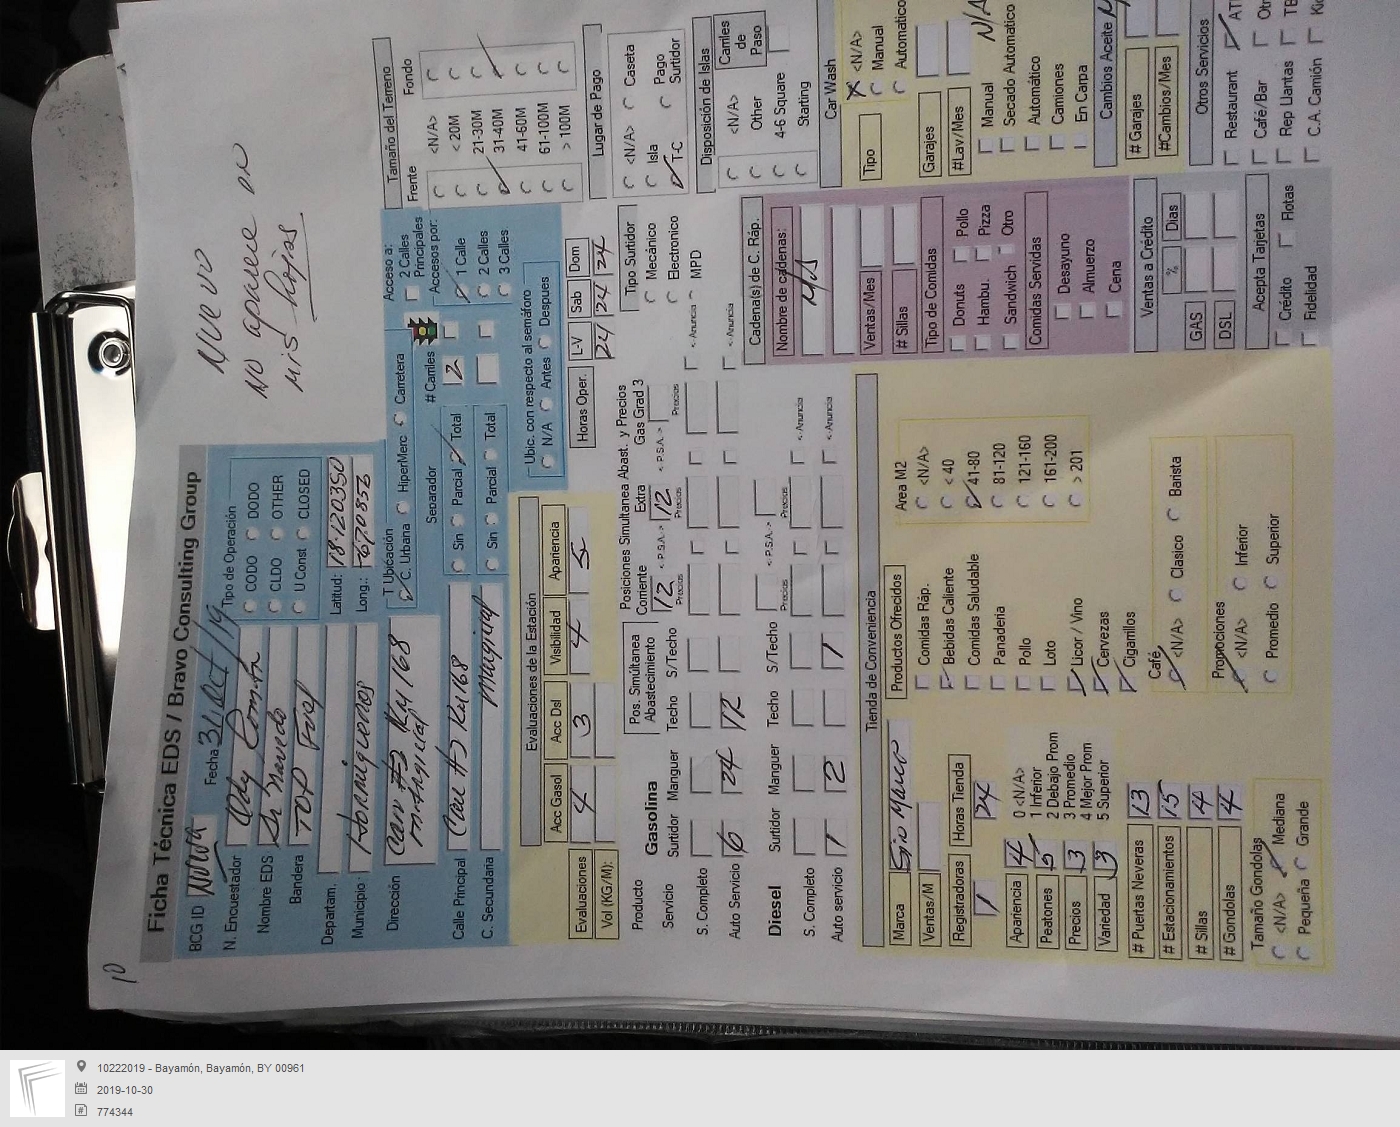 10
NUEVO
NO aparece en
mis hojas
Ficha Técnica EDS / Bravo Consulting Group
BCG ID Nueva Fecha 31/oct/19
N. Encuestador
Nombre EDS
Bandera TOP Fuel
Departam.
Municipio: Hormigueros
Dirección Carr #2 Km 168
Calle Principal Carr #2 Km 168
C. Secundaria Marginal
Tipo de Operación
CODO DODO
CLDO OTHER
U Const CLOSED
Latitud: 18.120350
Long.:
T Ubicación
C. Urbana HiperMerc Carretera
Separador # Carriles
Sin Parcial Total 2
Sin Parcial Total
Acceso a:
2 Calles Principales
Accesos por:
1 Calle
2 Calles
3 Calles
Ubic. con respecto al semáforo
N/A Antes Despues
Tamaño del Terreno
Frente Fondo
<N/A>
< 20M
21-30M
31-40M
41-60M
61-100M
> 100M
Evaluaciones de la Estación
Acc Gasol Acc Dsl Visibilidad Apariencia
Evaluaciones 4 3 4 5
Vol (KG/M):
Horas Oper. L-V Sab Dom
24 24 24
Lugar de Pago
<N/A> Caseta
Isla Pago Surtidor
T-C
Producto Gasolina
Pos. Simúltanea Abastecimiento
Posiciones Simultanea Abast. y Precios
Corriente Extra Gas Grad 3
12 <-P.S.A.-> 12 <-P.S.A.->
Precios Precios Precios
Servicio Surtidor Manguer Techo S/Techo
S. Completo <-Anuncia
Auto Servicio 6 24 12 <-Anuncia
Tipo Surtidor
Mecánico
Electronico
MPD
Diesel Surtidor Manguer Techo S/Techo
<-P.S.A.->
Precios Precios
S. Completo <-Anuncia
Auto servicio 1 2 1 <-Anuncia
Disposición de Islas
<N/A> Carriles de Paso
Other
4-6 Square
Starting
Tienda de Conveniencia
Marca Gio Market
Ventas/M
Registradoras Horas Tienda
1 24
Apariencia 4
Peatones 5
Precios 3
Variedad 3
0 <N/A>
1 Inferior
2 Debajo Prom
3 Promedio
4 Mejor Prom
5 Superior
# Puertas Neveras 13
# Estacionamientos 15
# Sillas 4
# Gondolas 4
Tamaño Gondolas
<N/A> Mediana
Pequeña Grande
Productos Ofrecidos
Comidas Ráp.
Bebidas Caliente
Comidas Saludable
Panaderia
Pollo
Loto
Licor / Vino
Cervezas
Cigarillos
Area M2
<N/A>
< 40
41-80
81-120
121-160
161-200
> 201
Café
<N/A> Clasico Barista
Propociones
<N/A> Inferior
Promedio Superior
Cadena(s) de C. Ráp.
Nombre de cadenas:
Ventas/Mes
# Sillas
Tipo de Comidas
Donuts Pollo
Hambu. Pizza
Sandwich Otro
Comidas Servidas
Desayuno
Almuerzo
Cena
Ventas a Crédito
% Dias
GAS
DSL
Acepta Tarjetas
Crédito Flotas
Fidelidad
Car Wash
Tipo <N/A>
Manual
Automatico
Garajes
#Lav/Mes
Manual N/A
Secado Automatico
Automático
Camiones
En Carpa
Cambios Aceite
# Garajes
#Cambios/Mes
Otros Servicios
Restaurant
Café/Bar
Rep Llantas
C.A. Camión
10222019 - Bayamón, Bayamón, BY 00961
2019-10-30
774344